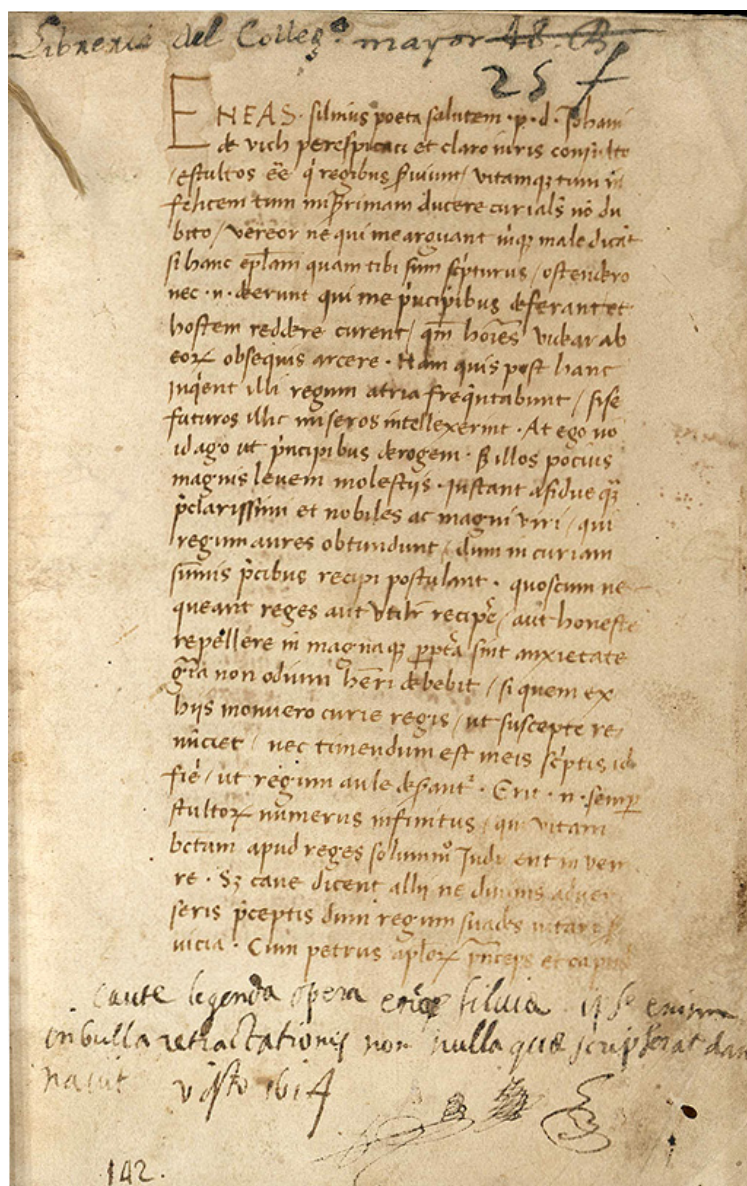 Libreria del Colleg.º mayor 48. B
25 f
ENEAS · silvius poeta salutem · p · d · Johani
de vich perespicaci et claro iuris consulto
/ estultos eē q̇ regibus s̃viunt / vitamqꝫ tum in
felicem tum misẽrimam ducere curiales nō du
bito / vereor ne qui me arguant inqꝫ maledicāt
si hanc ep̄lam quam tibi sum scͥpturus / ostendero
nec · n · deerunt qui me pͥncipibus deferant et
hostem reddere curent / qm̄ hoīes videar ab
eorꝝ obsequis arcere · Nam quis post hanc
inq̇ent illi regum atria freq̇ntabunt / si se
futuros illic miseros intellexerint · At ego nō
id ago ut pͥncipibus derogem · S illos pocius
magnis levem molestijs · instant asidue qꝫ
p̄clarissimi et nobiles ac magni viri / qui
regum aures obtundunt / dum in curiam
sūmis p̄cibus recipi postulant · quos cum ne
queant reges aut utilr̄ recipe / aut honeste
repellere in magnaqꝫ ꝑpetā sint anxietate
gr̄a non odium h̄eri debebit / si quem ex
hijs monuero curie regis / ut suscepte re
nūciet / nec timendum est meis scͥptis id
fiē / ut regum aule desūant² · Erit · n · semꝑ
stultorꝝ numerus infinitus / qui vitam
bc̄tam apud reges solummº Judicent inveni
re · Sꝫ cave dicent allij ne divinis adver
seris p̄ceptis dum regum suades vitare s̃
vicia · Cum petrus ap̄lorꝝ pͥnceps et caput
caute legenda opera eneę silvii ipse enim
in bulla retractationis non nulla quæ scripserat dam
navit visto 1614
142.